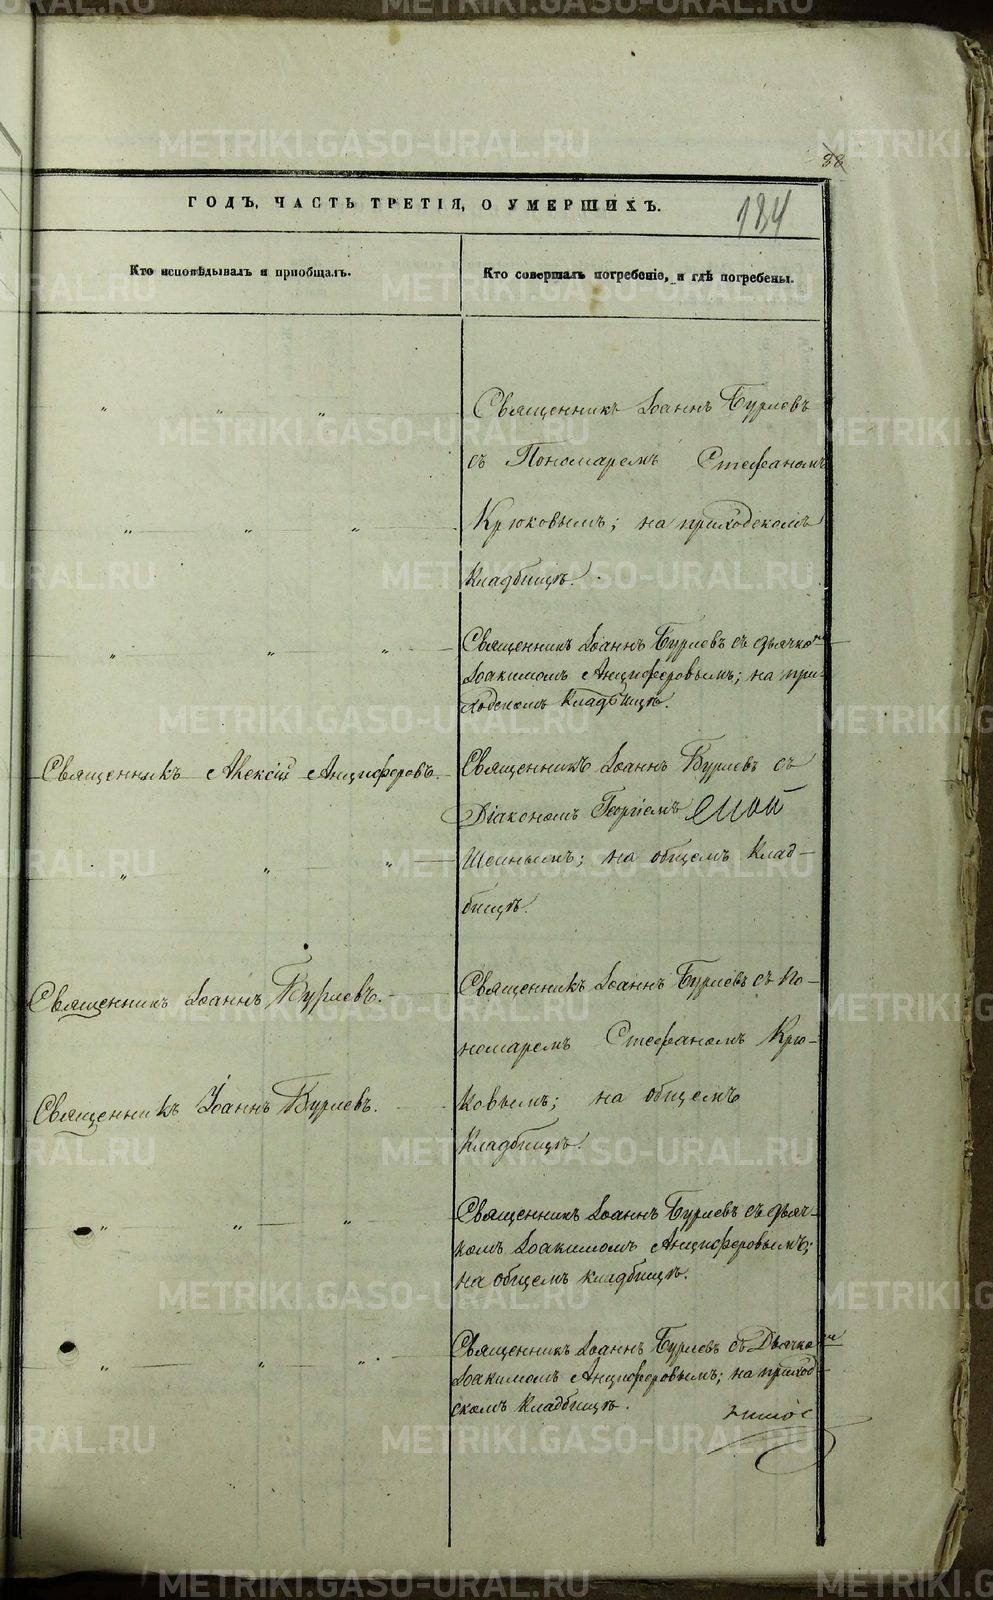 88
184
ГОДЪ, ЧАСТЬ ТРЕТІЯ, О УМЕРШИХЪ.
Кто исповѣдывалъ и пріобщалъ.
Кто совершалъ погребеніе, и гдѣ погребены.
Священникъ Іоаннъ Бурлевъ
съ Пономаремъ Стефаномъ
Крюковымъ; на приходскомъ
Кладбищѣ.
Священникъ Іоаннъ Бурлевъ съ дьячко
Іоакимомъ Анциферовымъ; на при-
ходскомъ Кладбищѣ.
Священникъ Алексій Анциферовъ.
Священникъ Іоаннъ Бурлевъ съ
Діакономъ Георгіемъ
на общемъ Клад-
бищѣ.
Священникъ Іоаннъ Бурлевъ.
Священникъ Іоаннъ Бурлевъ съ По-
номаремъ Стефаномъ Крю-
Священникъ Іоаннъ Бурлевъ.
ковымъ; на общемъ
Кладбищѣ.
Священникъ Іоаннъ Бурлевъ съ дьяч-
комъ Іоакимомъ Анциферовымъ;
на общемъ кладбищѣ.
Священникъ Іоаннъ Бурлевъ съ Дьячко
Іоакимомъ Анциферовымъ; на приход-
скомъ Кладбищѣ.
METRIKI.GASO-URAL.RU